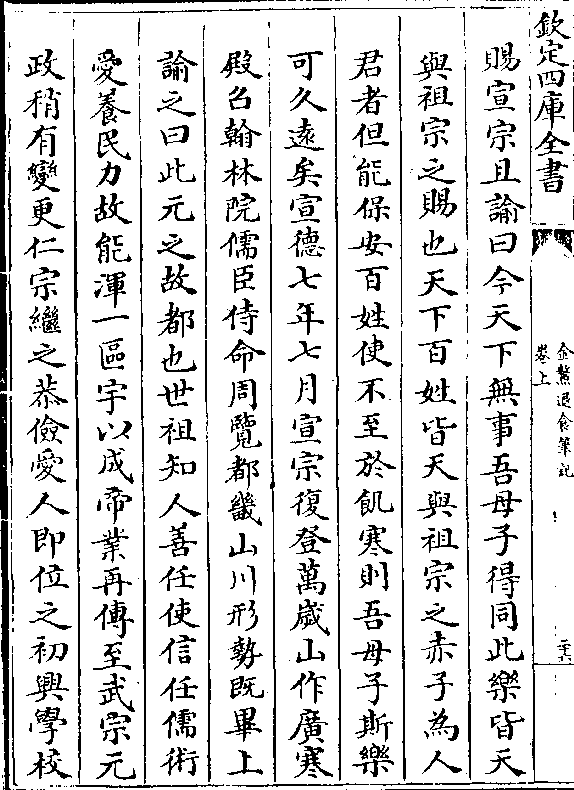 欽定四庫全書
金鰲退食筆記
卷上
賜宣宗且諭曰今天下無事吾母子得同此樂皆天
與祖宗之賜也天下百姓皆天與祖宗之赤子為人
君者但能保安百姓使不至於飢寒則吾母子斯樂
可久遠矣宣德七年七月宣宗復登萬歲山作廣寒
殿召翰林院儒臣侍命周覽都畿山川形勢既畢上
諭之曰此元之故都也世祖知人善任使信任儒術
愛養民力故能渾一區宇以成帝業再傳至武宗元
政稍有變更仁宗繼之恭儉愛人即位之初興學校